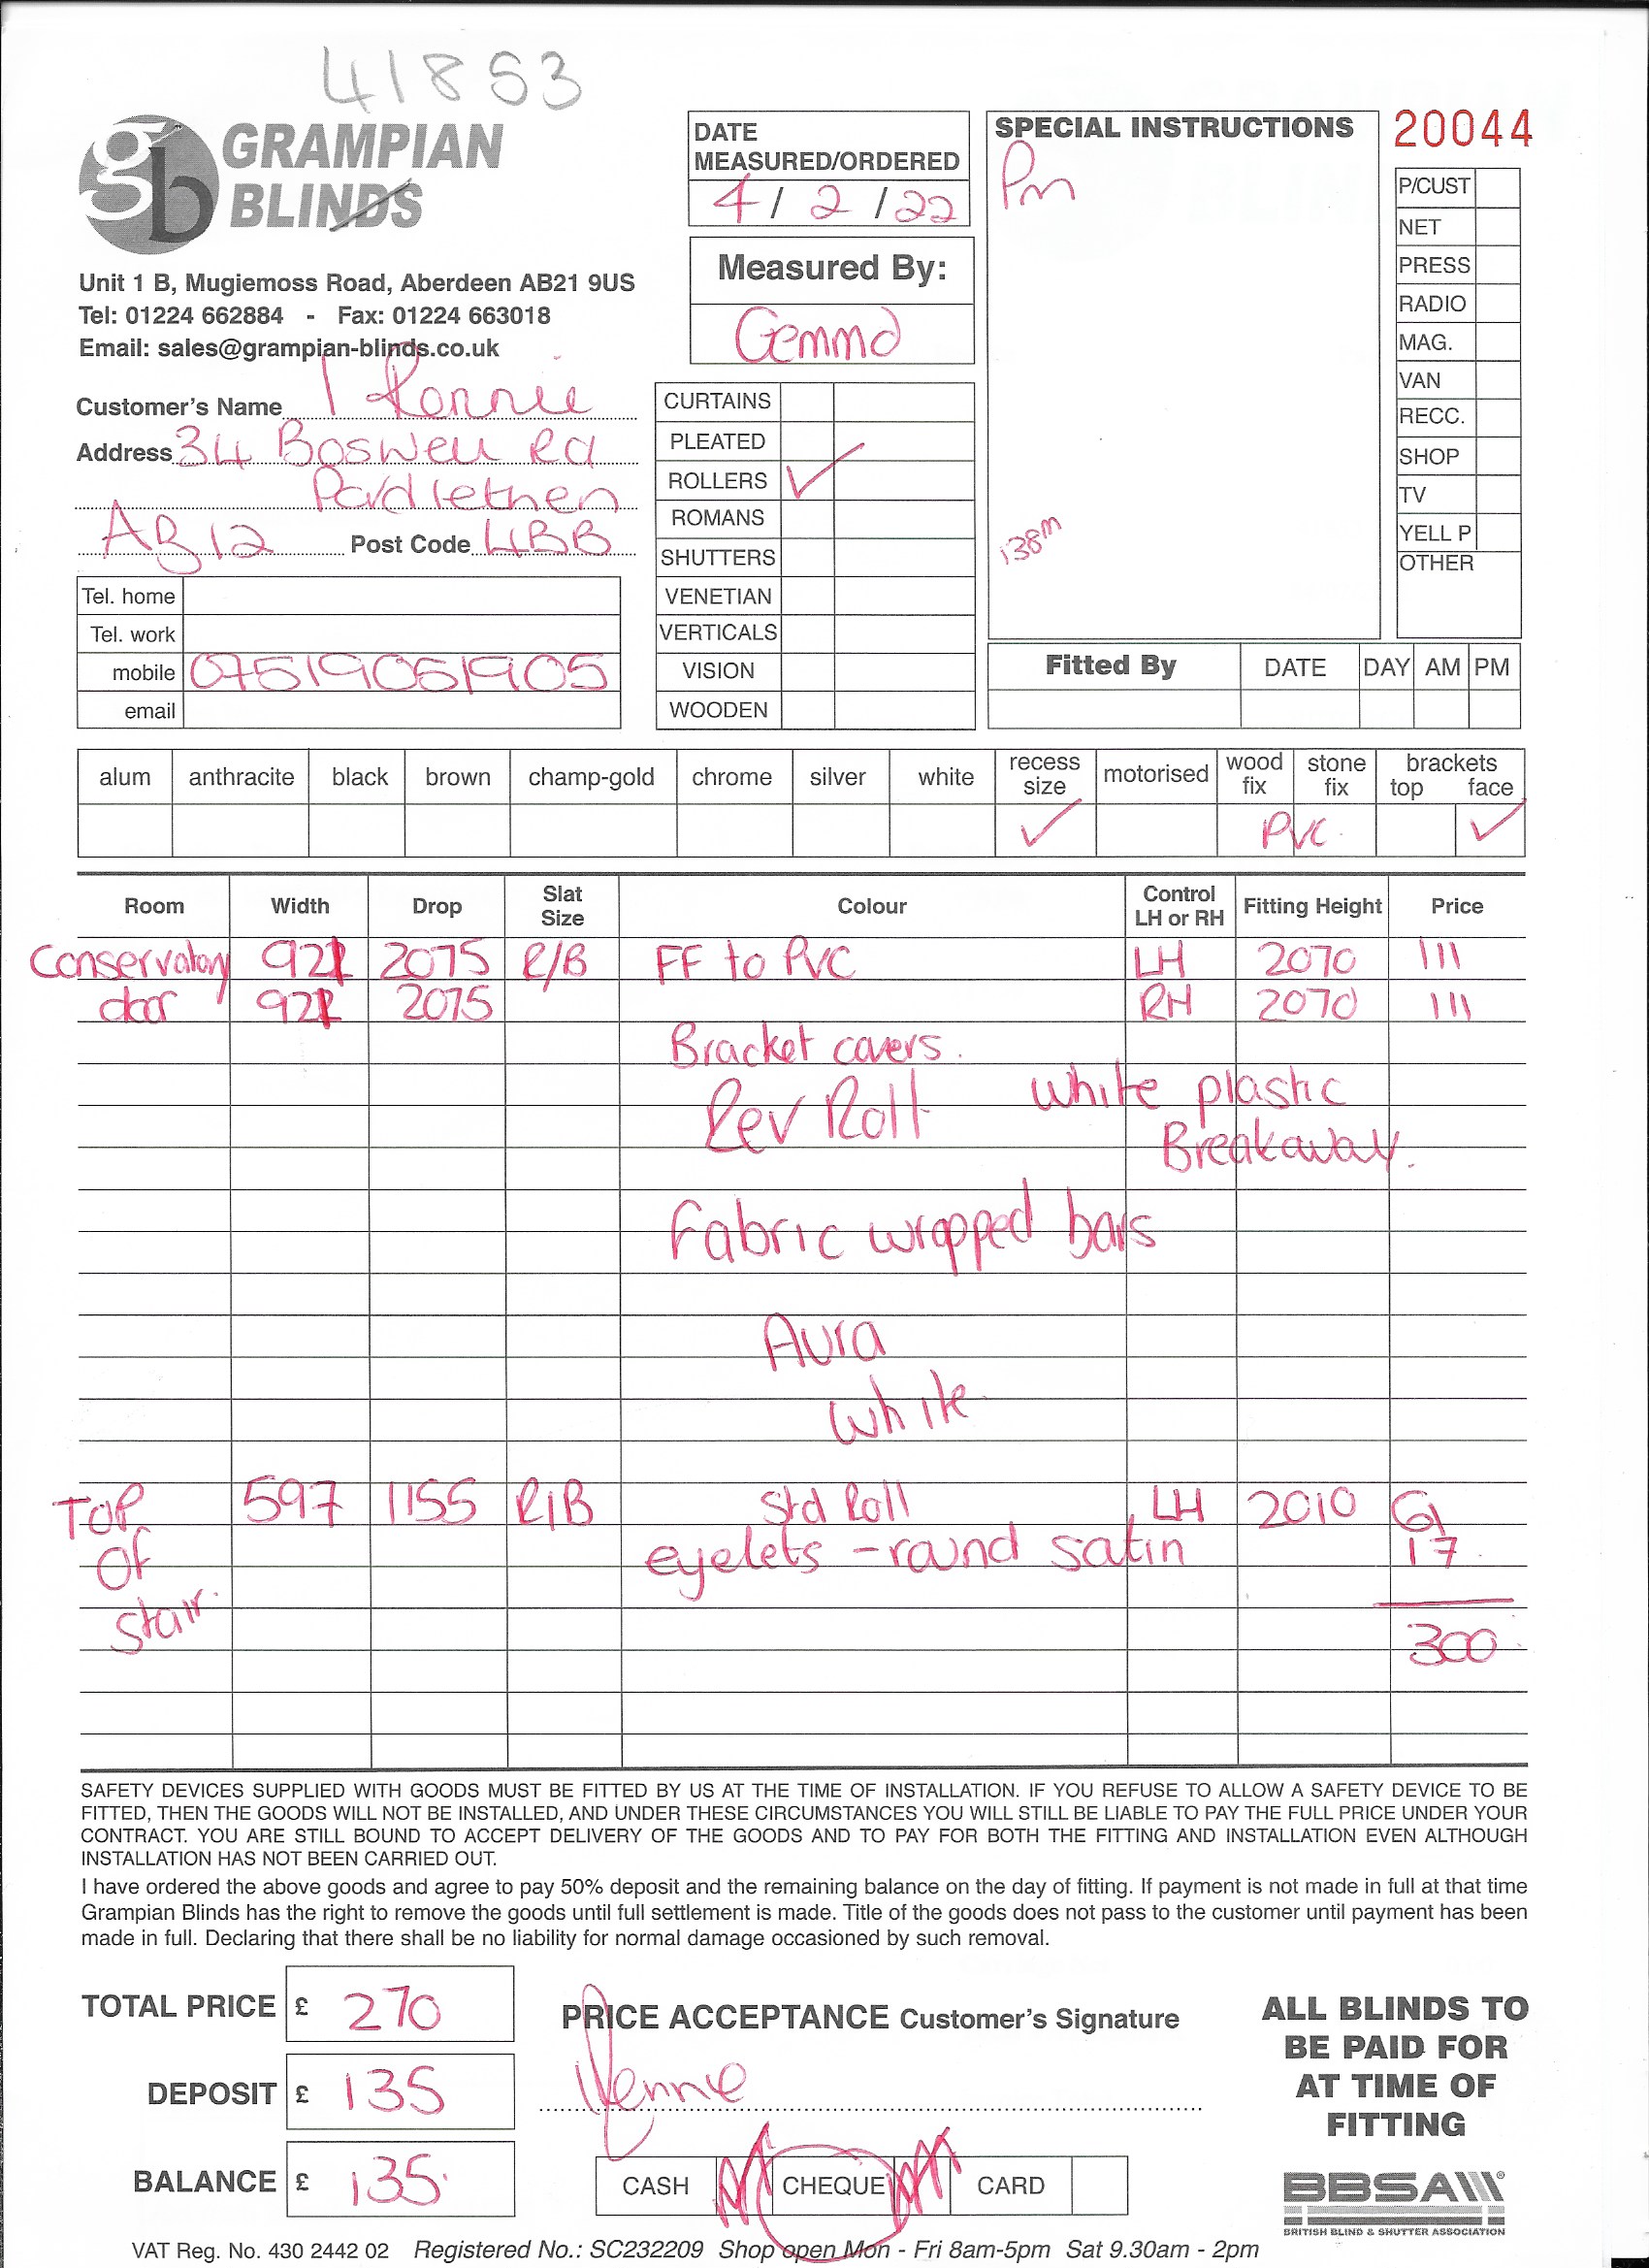 41853
GRAMPIAN
BLINDS
Unit 1 B, Mugiemoss Road, Aberdeen AB21 9US
Tel: 01224 662884 - Fax: 01224 663018
Email: sales@grampian-blinds.co.uk
DATE
MEASURED/ORDERED
4 / 2 / 22
Measured By:
Gemma
SPECIAL INSTRUCTIONS
Pm
138m
20044
P/CUST
NET
PRESS
RADIO
MAG.
VAN
RECC.
SHOP
TV
YELL P
OTHER
Customer's Name I Rennie
Address 34 Boswell Rd
Portlethen
AB12 Post Code 4BB
Tel. home
Tel. work
mobile 07519051905
email
CURTAINS
PLEATED
ROLLERS ✓
ROMANS
SHUTTERS
VENETIAN
VERTICALS
VISION
WOODEN
Fitted By DATE DAY AM PM
alum anthracite black brown champ-gold chrome silver white recess size motorised wood fix stone fix brackets top face
✓ PVC ✓
Room Width Drop Slat Size Colour Control LH or RH Fitting Height Price
Conservatory 921 2075 R/B FF to PVC LH 2070 111
door 921 2075 RH 2070 111
Bracket covers.
Rev Roll white plastic
Breakaway.
Fabric wrapped bars
Aura
white
Top 597 1155 R/B Std Roll LH 2010 61
Of eyelets - round satin 17
stair. 300
SAFETY DEVICES SUPPLIED WITH GOODS MUST BE FITTED BY US AT THE TIME OF INSTALLATION. IF YOU REFUSE TO ALLOW A SAFETY DEVICE TO BE
FITTED, THEN THE GOODS WILL NOT BE INSTALLED, AND UNDER THESE CIRCUMSTANCES YOU WILL STILL BE LIABLE TO PAY THE FULL PRICE UNDER YOUR
CONTRACT. YOU ARE STILL BOUND TO ACCEPT DELIVERY OF THE GOODS AND TO PAY FOR BOTH THE FITTING AND INSTALLATION EVEN ALTHOUGH
INSTALLATION HAS NOT BEEN CARRIED OUT.
I have ordered the above goods and agree to pay 50% deposit and the remaining balance on the day of fitting. If payment is not made in full at that time
Grampian Blinds has the right to remove the goods until full settlement is made. Title of the goods does not pass to the customer until payment has been
made in full. Declaring that there shall be no liability for normal damage occasioned by such removal.
TOTAL PRICE £ 270
DEPOSIT £ 135
BALANCE £ 135
PRICE ACCEPTANCE Customer's Signature
Rennie
CASH CHEQUE CARD
ALL BLINDS TO
BE PAID FOR
AT TIME OF
FITTING
BBSA
BRITISH BLIND & SHUTTER ASSOCIATION
VAT Reg. No. 430 2442 02 Registered No.: SC232209 Shop open Mon - Fri 8am-5pm Sat 9.30am - 2pm